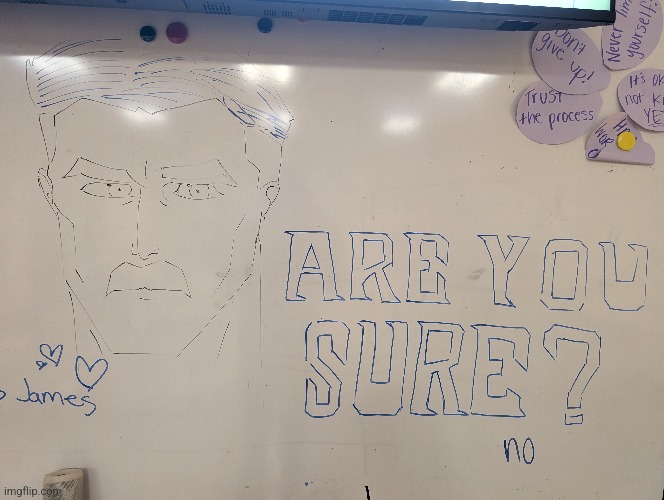 Don't
give up!
Never
yourself
TRUST
the process
It's OK
not
YET
ARE YOU
SURE?
no
James
imgflip.com